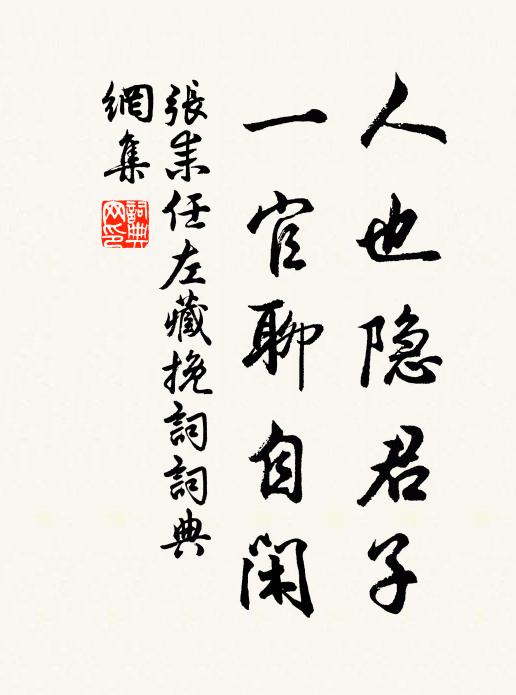 人也隐君子
一官聊自闲
張耒任左藏挽詞詞典
網集
詞典網印